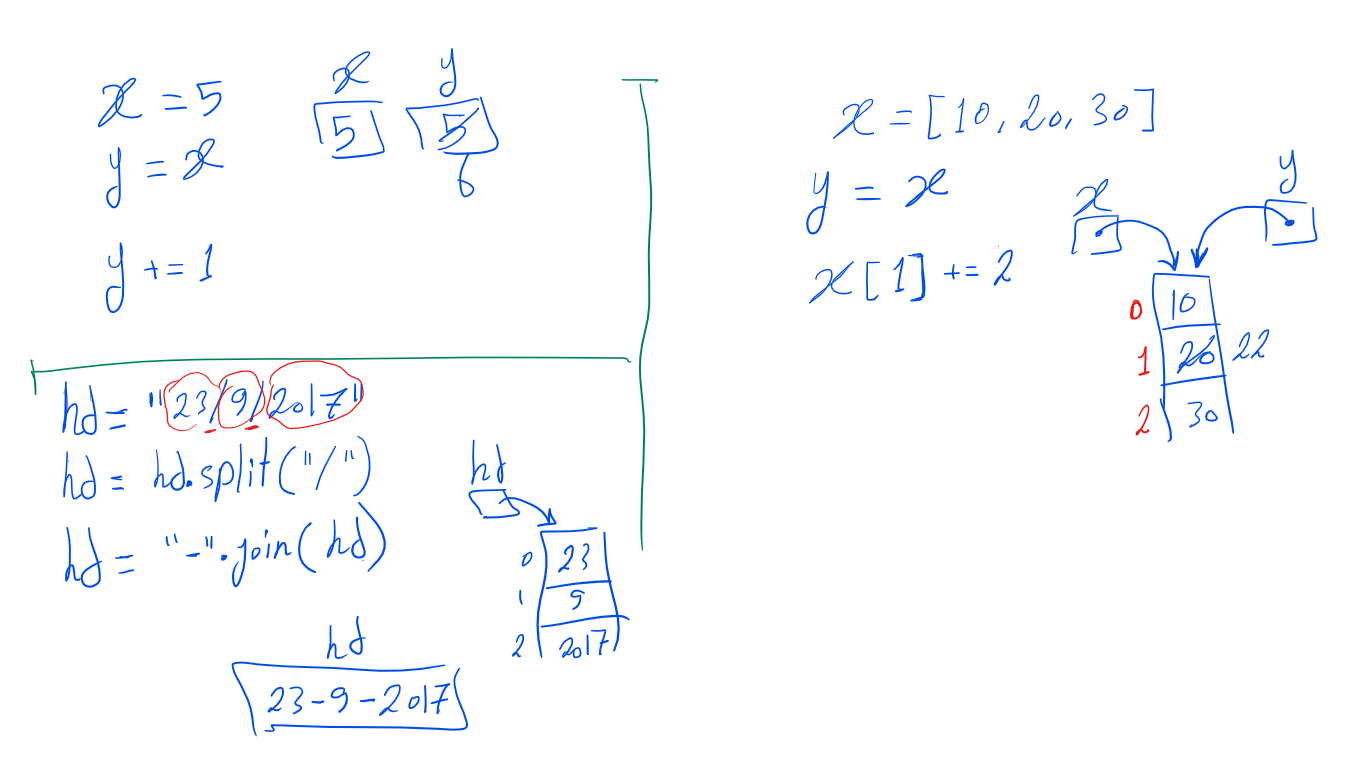 x = 5
y = x
y += 1
x y
5 5
6
hd = "23/9/2017"
hd = hd.split("/")
hd = "-".join(hd)
hd
0 23
1 9
2 2017
hd
23-9-2017
x = [10, 20, 30]
y = x
x[1] += 2
x y
0 10
1 20 22
2 30